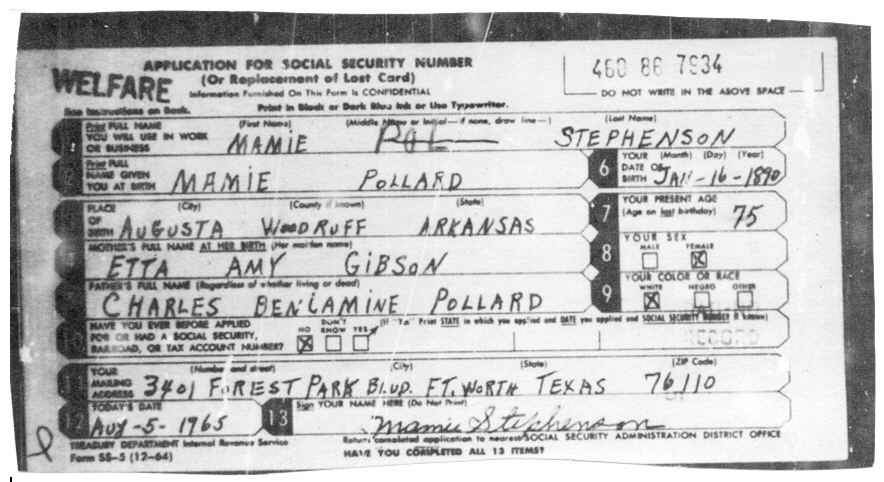 APPLICATION FOR SOCIAL SECURITY NUMBER
460 86 7934
WELFARE
(Or Replacement of Lost Card)
Information Furnished On This Form Is CONFIDENTIAL
DO NOT WRITE IN THE ABOVE SPACE
See Instructions on Back.
Print in Black or Dark Blue Ink or Use Typewriter.
Print FULL NAME (First Name) (Middle Name or Initial—if none, draw line—) (Last Name)
YOU WILL USE IN WORK OR BUSINESS MAMIE STEPHENSON
2 Print FULL NAME GIVEN YOU AT BIRTH MAMIE POLLARD
6 YOUR DATE OF BIRTH (Month) (Day) (Year) JAN-16-1890
PLACE OF BIRTH (City) (County if known) (State)
AUGUSTA WOODRUFF ARKANSAS
7 YOUR PRESENT AGE (Age on last birthday) 75
MOTHER'S FULL NAME AT HER BIRTH (Her maiden name)
ETTA AMY GIBSON
8 YOUR SEX MALE FEMALE X
FATHER'S FULL NAME (Regardless of whether living or dead)
CHARLES BENIAMINE POLLARD
9 YOUR COLOR OR RACE WHITE X NEGRO OTHER
10 HAVE YOU EVER BEFORE APPLIED FOR OR HAD A SOCIAL SECURITY, RAILROAD, OR TAX ACCOUNT NUMBER? NO X DON'T KNOW YES
(If "Yes" Print STATE in which you applied and DATE you applied and SOCIAL SECURITY NUMBER if known)
11 YOUR MAILING ADDRESS (Number and street) (City) (State) (ZIP Code)
3401 FOREST PARK BLVD. FT. WORTH TEXAS 76110
12 TODAY'S DATE AUG-5-1965
13 Sign YOUR NAME HERE (Do Not Print)
Mamie Stephenson
TREASURY DEPARTMENT Internal Revenue Service
Form SS-5 (12-64)
Return completed application to nearest SOCIAL SECURITY ADMINISTRATION DISTRICT OFFICE
HAVE YOU COMPLETED ALL 13 ITEMS?